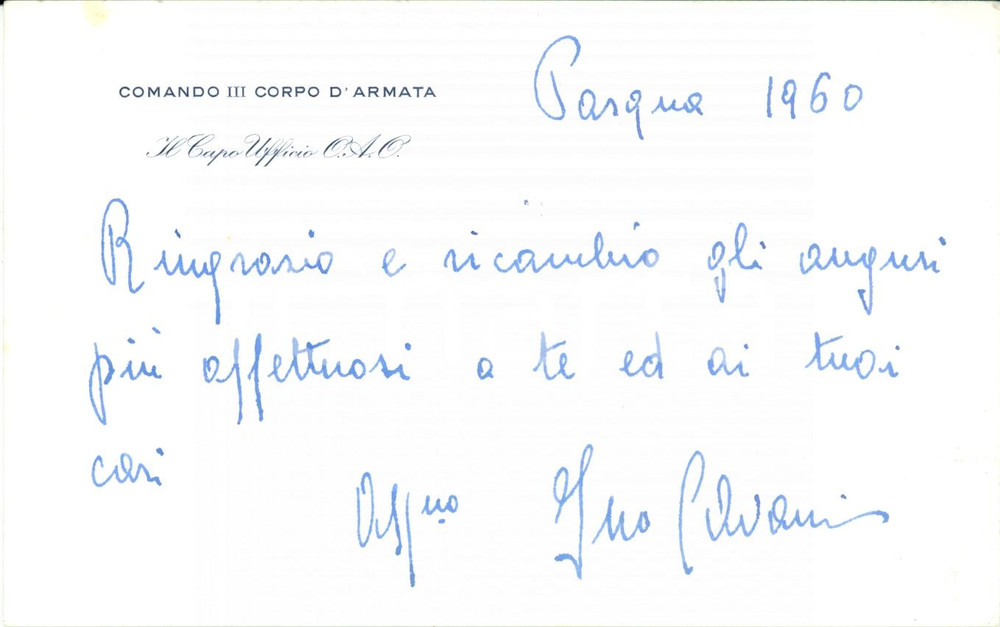 COMANDO III CORPO D'ARMATA
Il Capo Ufficio O.A.O.
Pasqua 1960
Ringrazio e ricambio gli auguri
più affettuosi a te ed ai tuoi
cari
Aff.mo